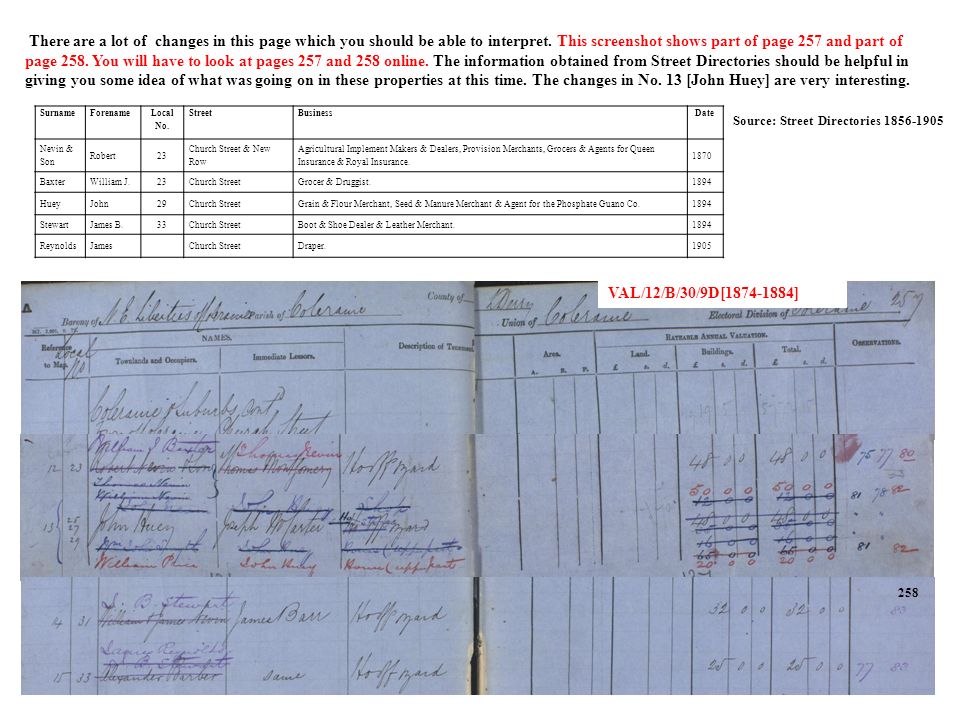 There are a lot of changes in this page which you should be able to interpret. This screenshot shows part of page 257 and part of
page 258. You will have to look at pages 257 and 258 online. The information obtained from Street Directories should be helpful in
giving you some idea of what was going on in these properties at this time. The changes in No. 13 [John Huey] are very interesting.
Surname Forename Local No. Street Business Date
Source: Street Directories 1856-1905
Nevin & Son Robert 23 Church Street & New Row Agricultural Implement Makers & Dealers, Provision Merchants, Grocers & Agents for Queen Insurance & Royal Insurance. 1870
Baxter William J. 23 Church Street Grocer & Druggist. 1894
Huey John 29 Church Street Grain & Flour Merchant, Seed & Manure Merchant & Agent for the Phosphate Guano Co. 1894
Stewart James B. 33 Church Street Boot & Shoe Dealer & Leather Merchant. 1894
Reynolds James Church Street Draper. 1905
VAL/12/B/30/9D[1874-1884]
Barony of N.E. Liberties of Coleraine Parish of Coleraine County of Derry Union of Coleraine Electoral Division of Coleraine 257
Reference to Map. Local No NAMES. Townlands and Occupiers. Immediate Lessors. Description of Tenement Area. A. R. P. RATEABLE ANNUAL VALUATION. Land. £ s. d. Buildings. £ s. d. Total. £ s. d. OBSERVATIONS.
Coleraine & Suburbs Contd
Church Street
William J Baxter Thomas Nevin
12 23 Robert Nevin & Son Thomas Montgomery Ho off yard 48 0 0 48 0 0 75 77 80
Thomas Nevin 50 0 0 50 0 0
William Nevin 81 78 82
13 25 27 29 John Huey Joseph McCarter Ho off yard 48 0 0 48 0 0
John Huey House (upp part 81 82
William Price John Huey House (upp part 20 0 0 20 0 0
258
J. B. Stewart
14 31 William & James Nevin James Barr Ho off yard 32 0 0 32 0 0 80
James Reynolds
J. B. Stewart
15 33 Alexander Barber same Ho off yard 25 0 0 25 0 0 77 80